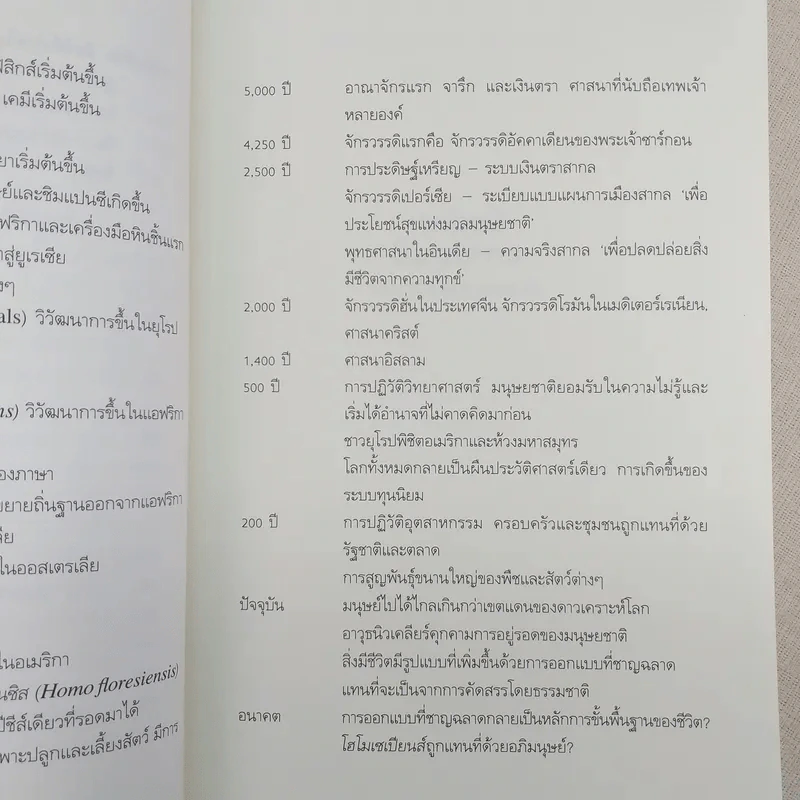 ฟิสิกส์เริ่มต้นขึ้น
เคมีเริ่มต้นขึ้น
ยาเริ่มต้นขึ้น
ษย์และชิมแปนซีเกิดขึ้น
ฟริกาและเครื่องมือหินชิ้นแรก
าสู่ยูเรเซีย
งๆ
als) วิวัฒนาการขึ้นในยุโรป
ns) วิวัฒนาการขึ้นในแอฟริกา
องภาษา
ยายถิ่นฐานออกจากแอฟริกา
ลีย
ในออสเตรเลีย
ในอเมริกา
นซิส (Homo floresiensis)
ปีชีส์เดียวที่รอดมาได้
พาะปลูกและเลี้ยงสัตว์ มีการ
5,000 ปี อาณาจักรแรก จารึก และเงินตรา ศาสนาที่นับถือเทพเจ้า
หลายองค์
4,250 ปี จักรวรรดิแรกคือ จักรวรรดิอัคคาเดียนของพระเจ้าซาร์กอน
2,500 ปี การประดิษฐ์เหรียญ – ระบบเงินตราสากล
จักรวรรดิเปอร์เซีย – ระเบียบแบบแผนการเมืองสากล ‘เพื่อ
ประโยชน์สุขแห่งมวลมนุษยชาติ’
พุทธศาสนาในอินเดีย – ความจริงสากล ‘เพื่อปลดปล่อยสิ่ง
มีชีวิตจากความทุกข์’
2,000 ปี จักรวรรดิฮั่นในประเทศจีน จักรวรรดิโรมันในเมดิเตอร์เรเนียน,
ศาสนาคริสต์
1,400 ปี ศาสนาอิสลาม
500 ปี การปฏิวัติวิทยาศาสตร์ มนุษยชาติยอมรับในความไม่รู้และ
เริ่มได้อำนาจที่ไม่คาดคิดมาก่อน
ชาวยุโรปพิชิตอเมริกาและห้วงมหาสมุทร
โลกทั้งหมดกลายเป็นผืนประวัติศาสตร์เดียว การเกิดขึ้นของ
ระบบทุนนิยม
200 ปี การปฏิวัติอุตสาหกรรม ครอบครัวและชุมชนถูกแทนที่ด้วย
รัฐชาติและตลาด
การสูญพันธุ์ขนานใหญ่ของพืชและสัตว์ต่างๆ
ปัจจุบัน มนุษย์ไปได้ไกลเกินกว่าเขตแดนของดาวเคราะห์โลก
อาวุธนิวเคลียร์คุกคามการอยู่รอดของมนุษยชาติ
สิ่งมีชีวิตมีรูปแบบที่เพิ่มขึ้นด้วยการออกแบบที่ชาญฉลาด
แทนที่จะเป็นจากการคัดสรรโดยธรรมชาติ
อนาคต การออกแบบที่ชาญฉลาดกลายเป็นหลักการขั้นพื้นฐานของชีวิต?
โฮโมเซเปียนส์ถูกแทนที่ด้วยอภิมนุษย์?